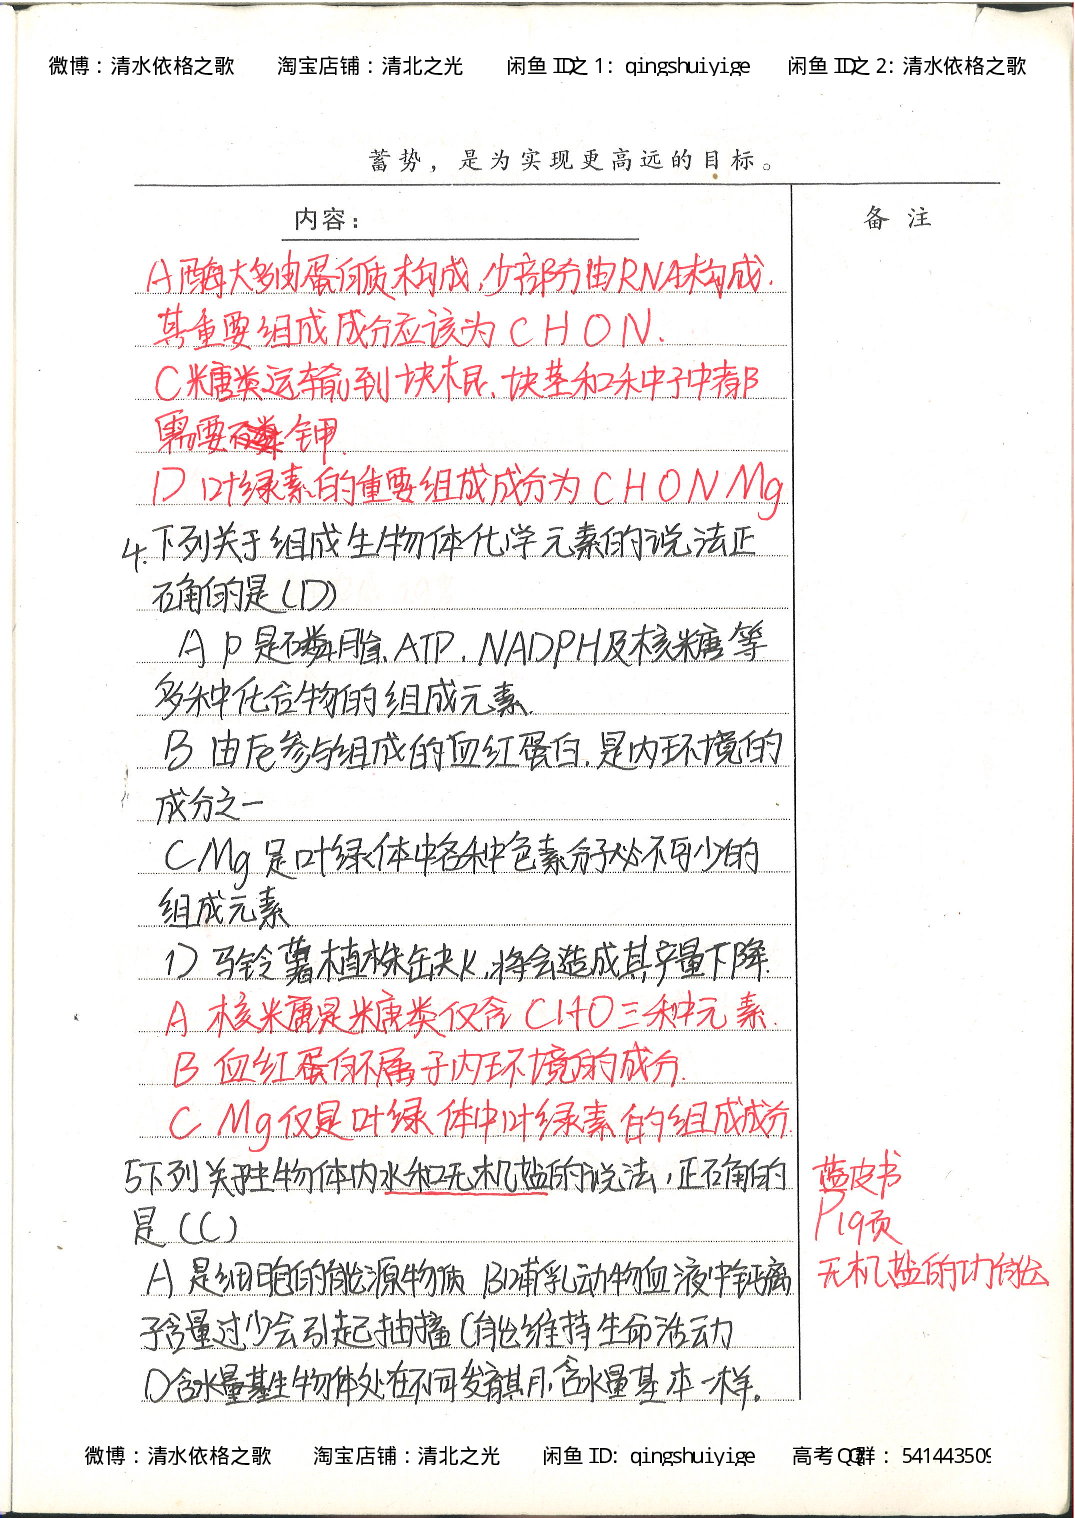 微博：清水依格之歌 淘宝店铺：清北之光 闲鱼 ID之 1: qingshuiyige 闲鱼 ID之 2: 清水依格之歌
蓄势，是为实现更高远的目标。
内容：
备 注
A 酶大多由蛋白质构成,少部分由RNA构成.
其重要组成成分应该为 C H O N.
C 糖类运输到块根、块茎和种子中都
需要 钾.
D 叶绿素的重要组成成分为 C H O N Mg
4.下列关于组成生物体化学元素的说法正
确的是(D)
A p 是磷脂、ATP、NADPH及核糖等
多种化合物的组成元素.
B 由Fe参与组成的血红蛋白.是内环境的
成分之一
C Mg 是叶绿体中各种色素分子必不可少的
组成元素
D 马铃薯植株缺K,将会造成其产量下降.
A 核糖是糖类仅含 CHO三种元素.
B 血红蛋白不属于内环境的成分.
C Mg仅是叶绿体中叶绿素的组成成分.
5下列关于生物体内水和无机盐的说法,正确的
是(C)
A 是细胞的能源物质 B哺乳动物血液中钙离
子含量过少会引起抽搐 C能维持生命活动
D含水量基生物体处在不同发育期,含水量基本一样。
蓝皮书
P19页
无机盐的功能
微博：清水依格之歌 淘宝店铺：清北之光 闲鱼 ID: qingshuiyige 高考QQ群： 541443509